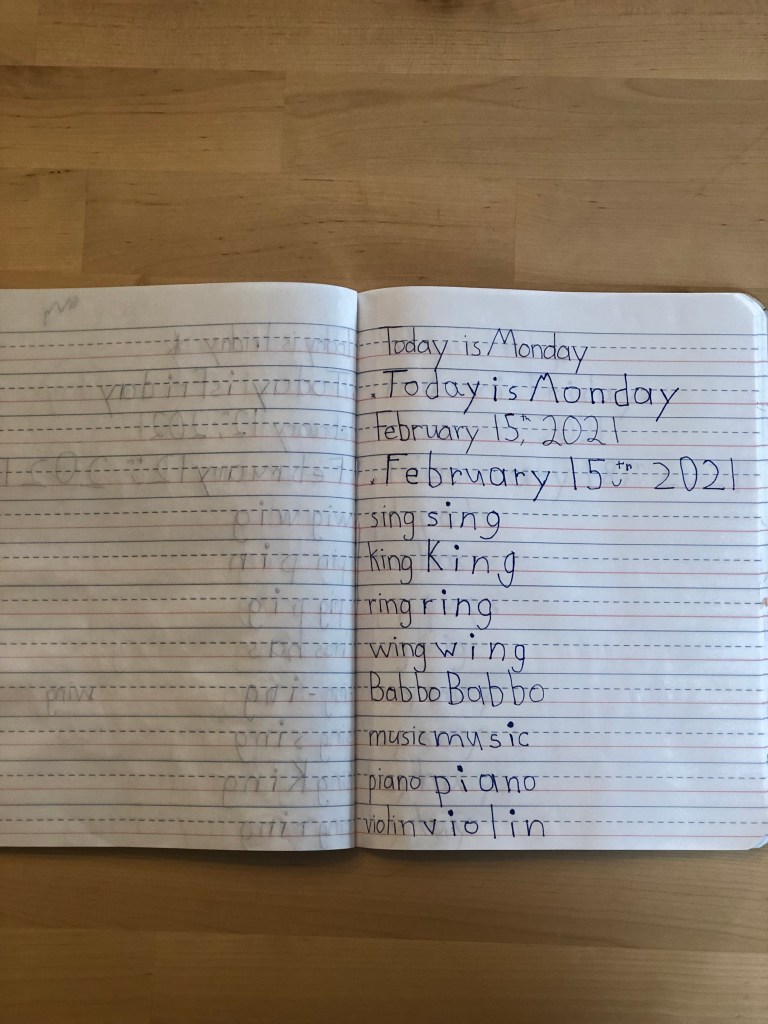 Today is Monday
.Today is Monday
February 15,th 2021
.February 15,th 2021
sing sing
king King
ring ring
wing wing
Babbo Babbo
music music
piano piano
violin violin